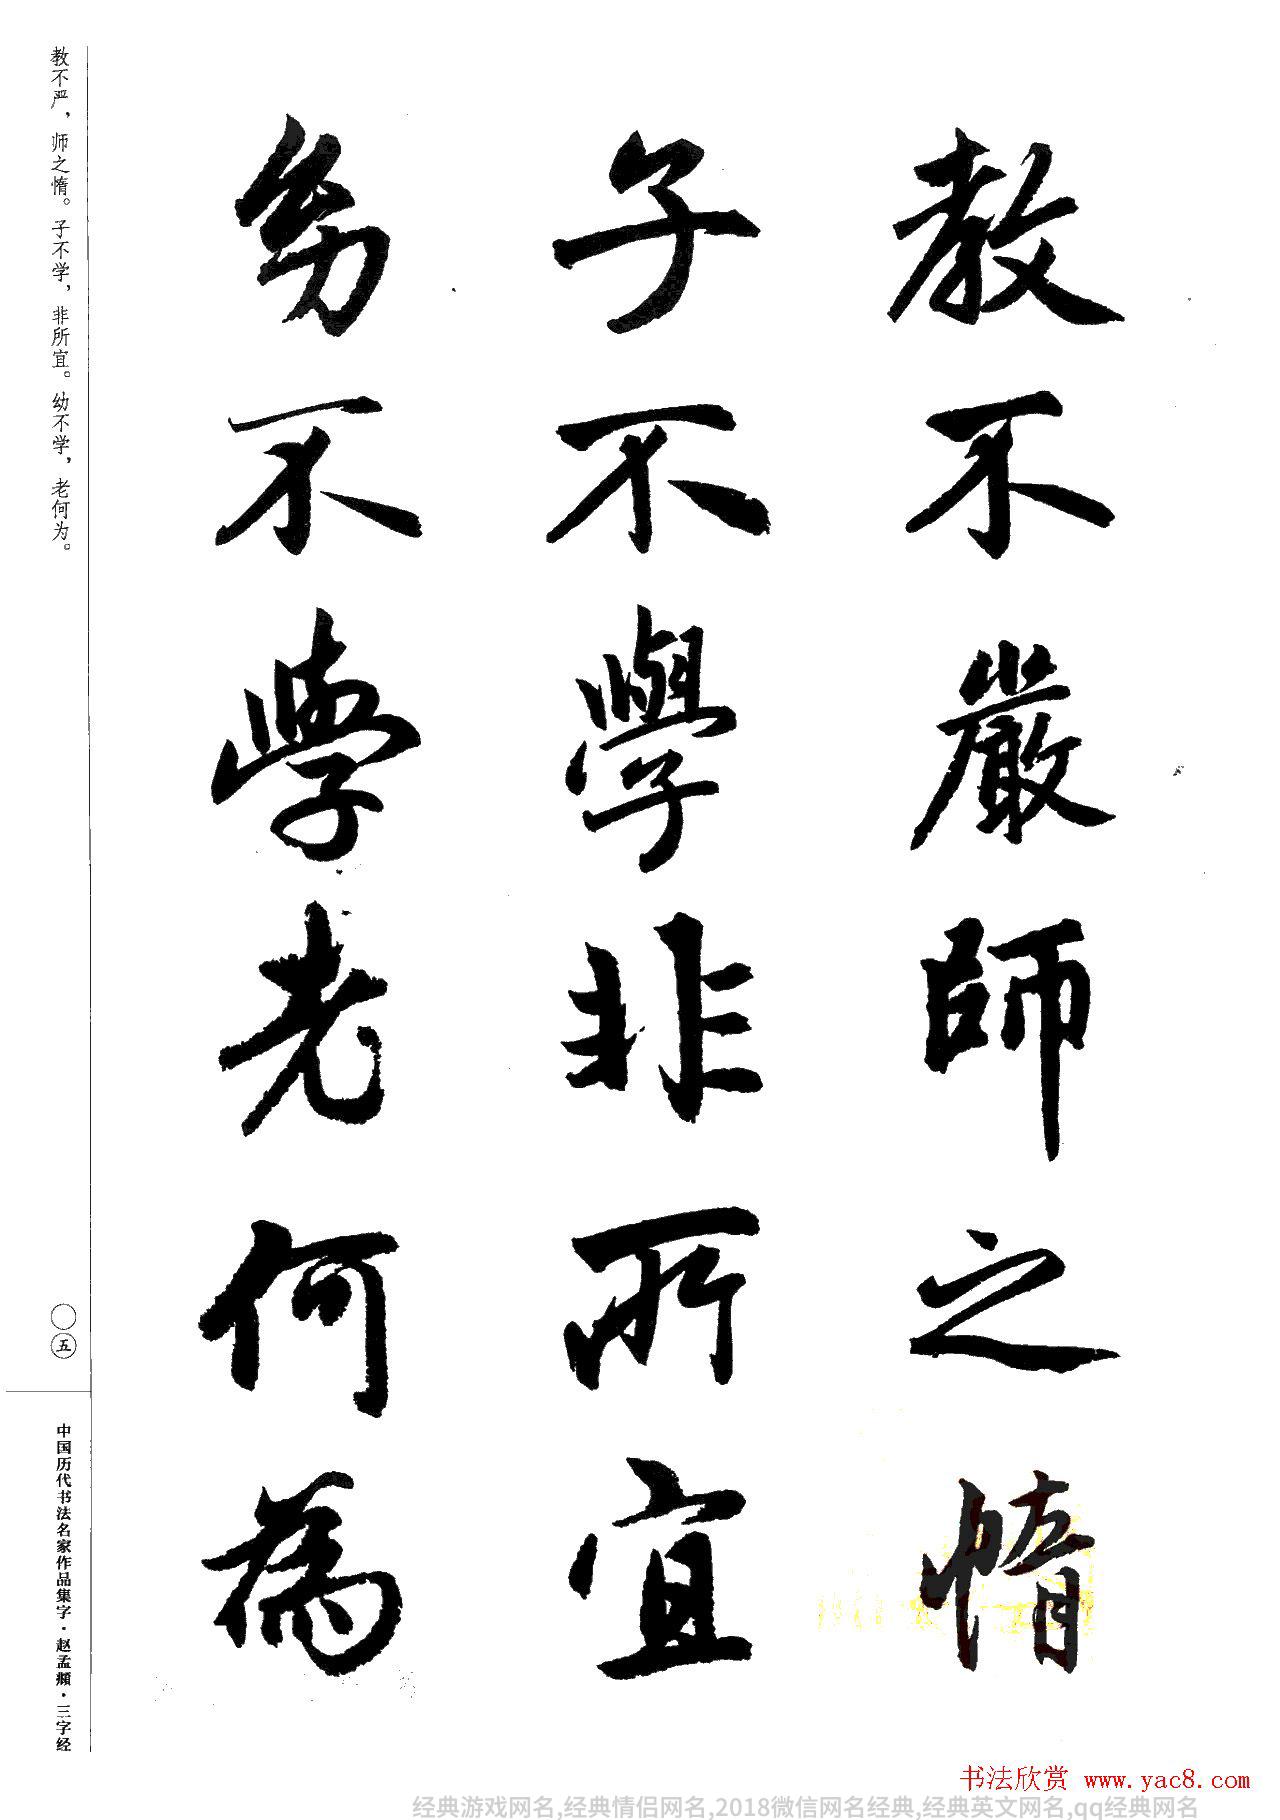 教不嚴師之惰
子不學非所宜
幼不學老何為
教不严，师之惰。子不学，非所宜。幼不学，老何为。
〇五
中国历代书法名家作品集字·赵孟頫·三字经
书法欣赏 www.yac8.com
经典游戏网名,经典情侣网名,2018微信网名经典,经典英文网名,qq经典网名